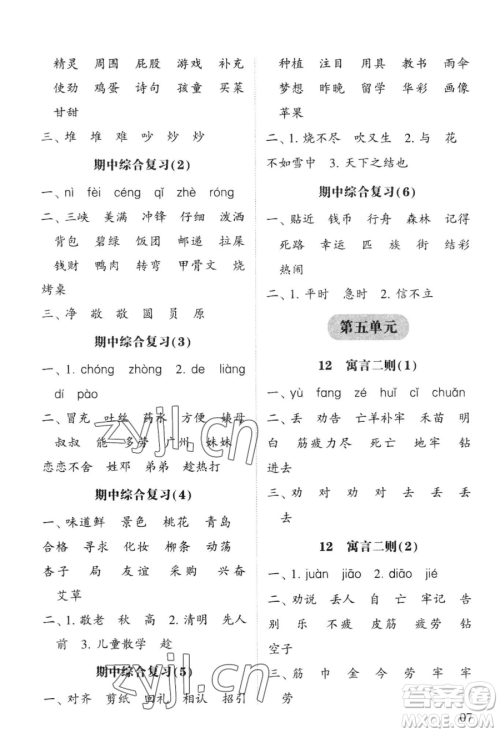 精灵 周围 屁股 游戏 补充
使劲 鸡蛋 诗句 孩童 买菜
甘甜
三、堆 堆 难 吵 炒 炒
期中综合复习(2)
一、nì fèi céng qǐ zhè róng
二、三峡 美满 冲锋 仔细 泼洒
背包 碧绿 饭团 面包 拉屎
钱财 鸭肉 转弯 甲骨文 烧
烤桌
三、净 敬 敬 圆 员 原
期中综合复习(3)
一、1. chóng zhòng 2. de liàng
dí pào
二、冒充 吐丝 药水 方便 姨母
叔叔 能 多劳 广州 妹妹
恋恋不舍 姓邓 弟弟 趁热打
期中综合复习(4)
一、味道鲜 景色 桃花 青岛
合格 寻求 化妆 柳条 动荡
杏子 局 发送 采购 兴奋
艾草
二、1. 敬老 秋 高 2. 清明 先人
前 3. 儿童散学 趁
期中综合复习(5)
一、对齐 剪纸 相信 招引
种植 注目 用具 教书 雨伞
梦想 昨晚 留学 华彩 画像
苹果
二、1. 烧不尽 吹又生 2. 与 花
不如雪中 3. 天下之忧
期中综合复习(6)
一、贴近 钱币 行舟 森林 记得
死路 幸运 匹夫 反对 结对
热闹
二、1. 平时 急时 2. 信不立
第五单元
12 寓言二则(1)
一、yù fang zé huǐ cī chuǎn
二、丢 劝告 亡羊补牢 禾苗 明
白 筋疲力尽 死亡 牢固 钻
进去
三、劝 对 劝 劝 对 劝 丢
丢 去
12 寓言二则(2)
一、1. juàn jiāo 2. diāo jié
二、寓言 丢 亡 牢记 劝告
高兴 不顾 皮筋 疲劳 钻
空子
三、筋 巾 金 今 劳 牢 牢
劳
07
答案圈
zyjl.cn
zyjl.cn